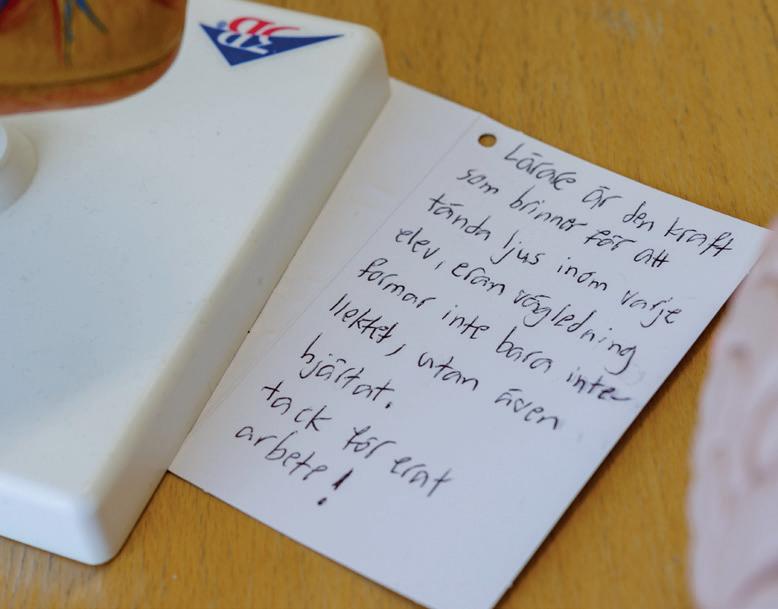 Lärare är den kraft
som brinner för att
tända ljus inom varje
elev, eran vägledning
formar inte bara inte-
llektet, utan även
hjärtat.
tack för erat
arbete!